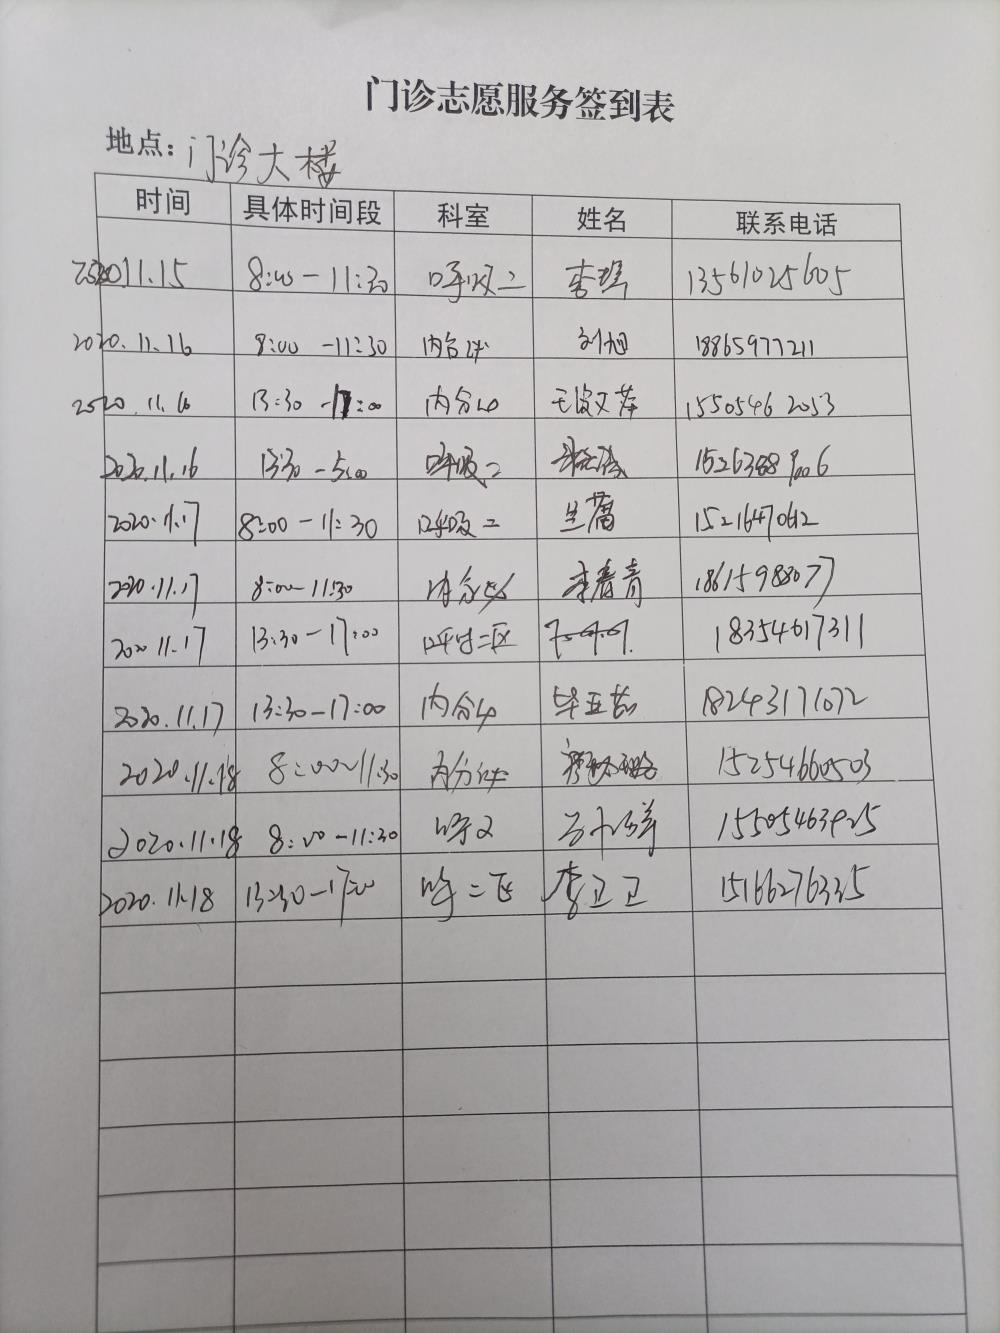 门诊志愿服务签到表
地点：门诊大楼
时间 具体时间段 科室 姓名 联系电话
2020.11.15 8:00-11:30 呼吸二 李瑶 13561025605
2020.11.16 8:00-11:30 内分泌 刘旭 18865977211
2020.11.16 13:30-17:00 内分泌 1550546 2053
2020.11.16 13:30-5:00 呼吸二
2020.11.17 8:00-11:30 呼吸二 15216470612
2020.11.17 8:00-11:30 内分泌 李春青 18615988077
2020.11.17 13:30-17:00 18354617311
2020.11.17 13:30-17:00 内分泌 18243171072
2020.11.18 8:00~11:30 内分泌 15254660503
2020.11.18 8:00-11:30 呼二
2020.11.18 13:30-17:00 李卫卫 15166276335